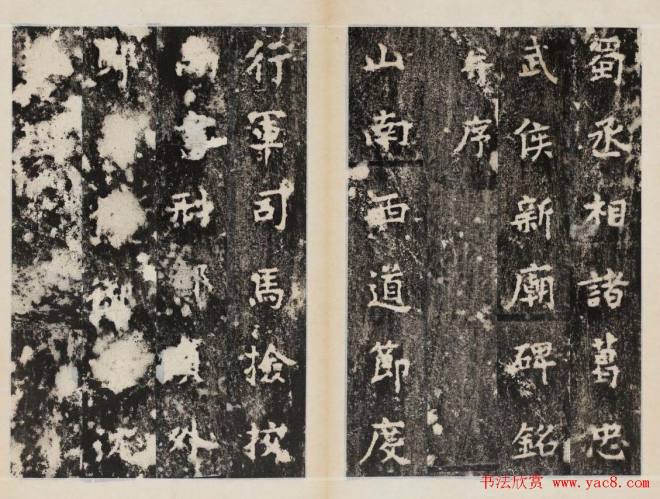 蜀丞相諸葛忠
武侯新廟碑銘
并序
山南西道節度
行軍司馬撿挍
尚書刑部員外
郎 御 沈
书法欣赏 www.yac8.com